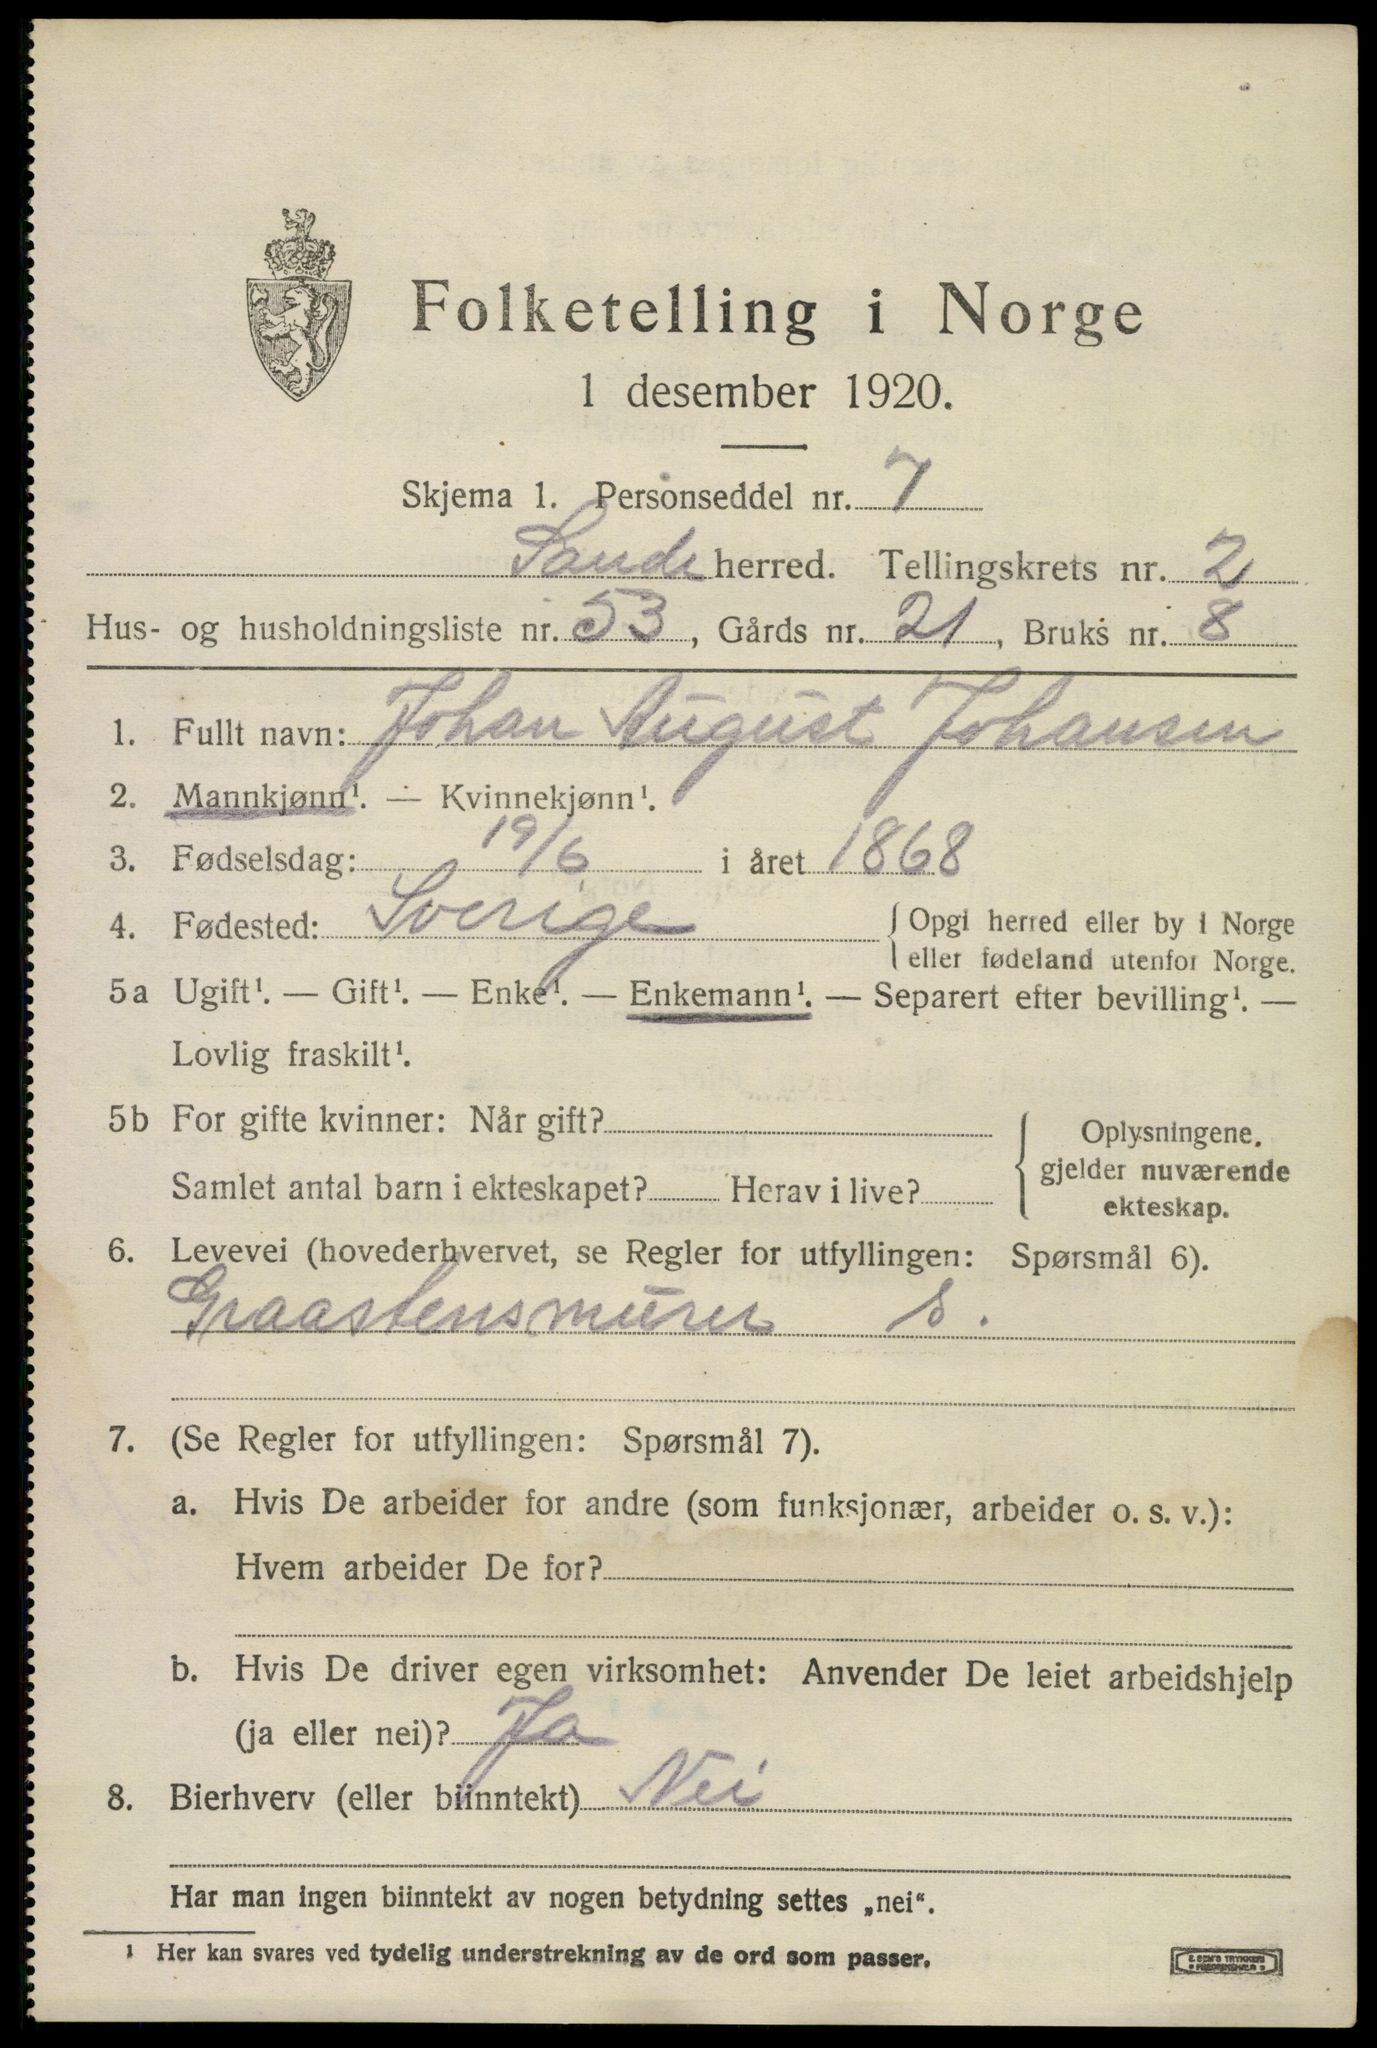 Folketelling i Norge
1 desember 1920.
Skjema 1. Personseddel nr. 7
Sande herred. Tellingskrets nr. 2
Hus- og husholdningsliste nr. 53, Gårds nr. 21, Bruks nr. 8
1. Fullt navn: Johan August Johansen
2. Mannkjønn¹. — Kvinnekjønn¹.
3. Fødselsdag: 19/6 i året 1868
4. Fødested: Sverige { Opgi herred eller by i Norge
eller fødeland utenfor Norge.
5a Ugift¹. — Gift¹. — Enke¹. — Enkemann¹. — Separert efter bevilling¹. —
Lovlig fraskilt¹.
5b For gifte kvinner: Når gift? { Oplysningene.
Samlet antal barn i ekteskapet? Herav i live? gjelder nuværende
ekteskap.
6. Levevei (hovederhvervet, se Regler for utfyllingen: Spørsmål 6).
Graastensmurer s.
7. (Se Regler for utfyllingen: Spørsmål 7).
a. Hvis De arbeider for andre (som funksjonær, arbeider o. s. v.):
Hvem arbeider De for?
b. Hvis De driver egen virksomhet: Anvender De leiet arbeidshjelp
(ja eller nei)? Ja
8. Bierhverv (eller biinntekt) Nei
Har man ingen biinntekt av nogen betydning settes „nei“.
¹ Her kan svares ved tydelig understrekning av de ord som passer.